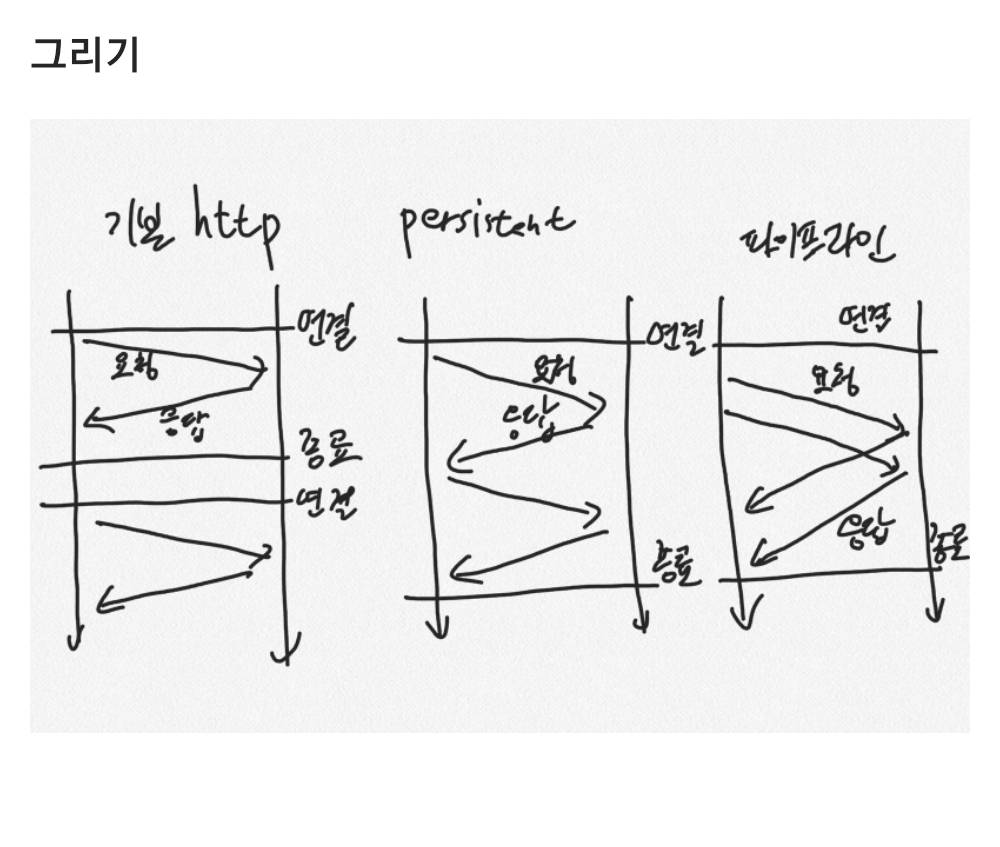 그리기
기본 http
연결
요청
응답
종료
연결
persistent
연결
요청
응답
종료
파이프라인
연결
요청
응답
종료